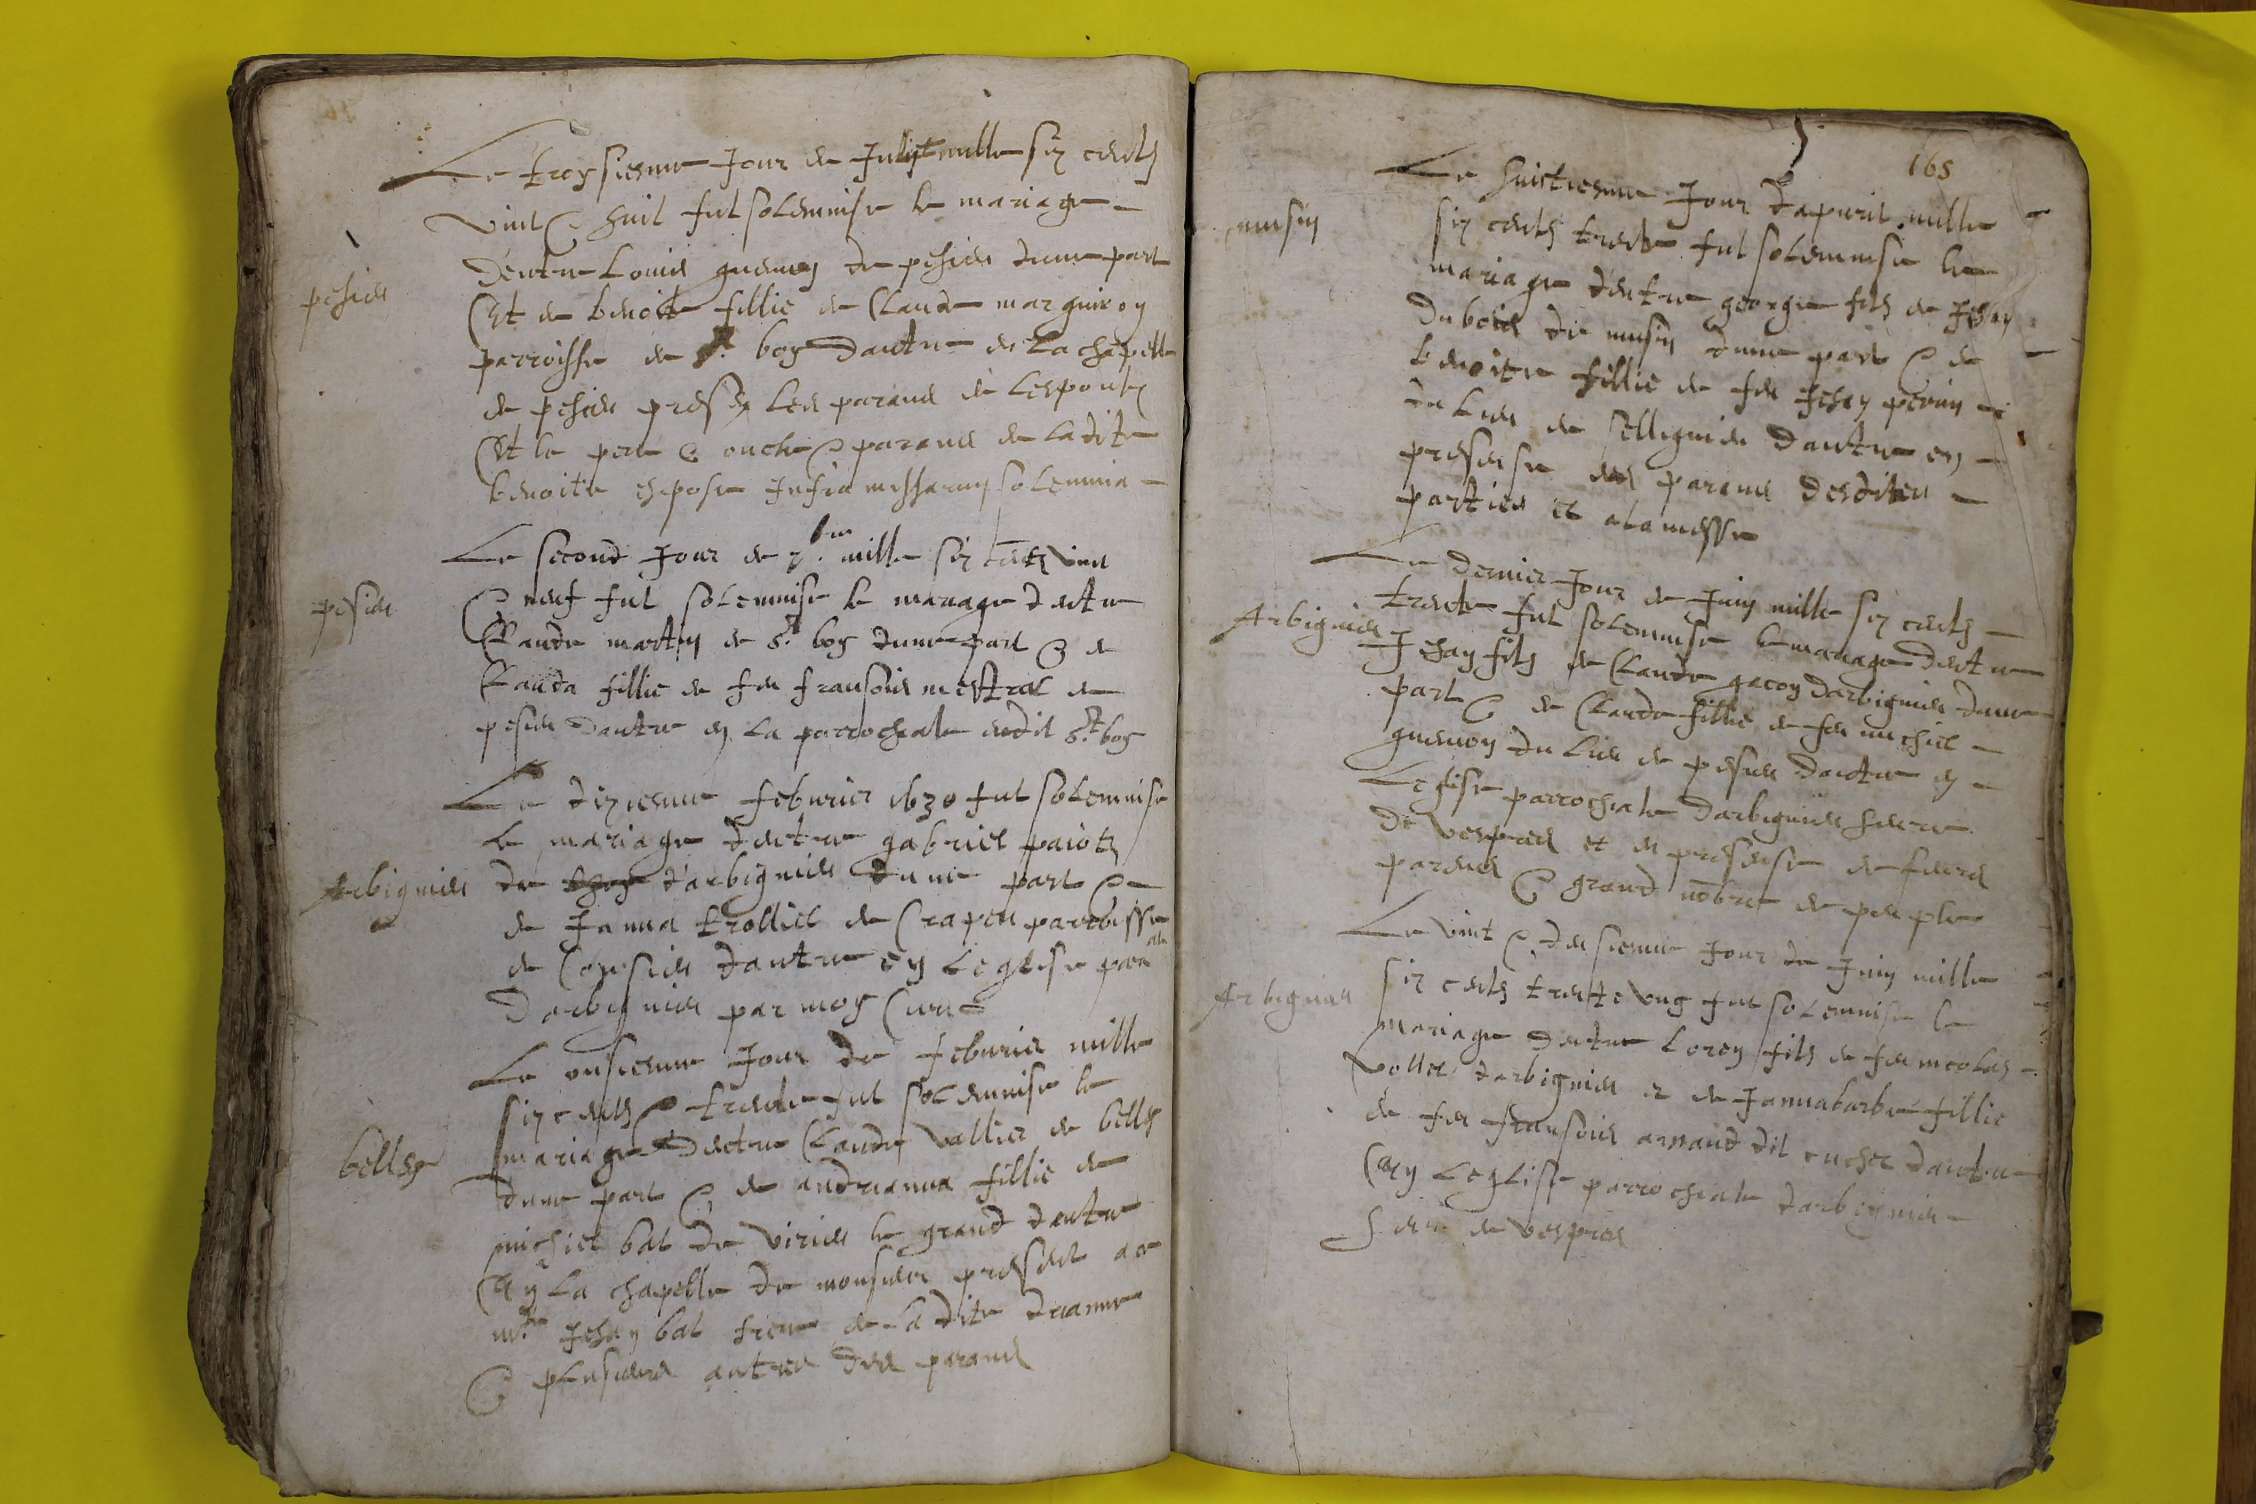 Le troysiesme Jour de Jullyet mille six cents
vint & huit fut solemnise le mariage
pesieu
dentre Louis guenoy de pesieu dune part
Et de benoite fillie de Claude marguiroy
parroisse de St boy dautre de la chapelle
de pesieu presens les parans de lespoux
Et le pere & oncle & parans de ladite
benoite espose infra missarum solemnia
Le second Jour de 7bre mille six cents vint
pesieu
& neuf fut solemnise le mariage dentre
Claude martin de St boy dune part & de
Clauda fillie de feu fransois mestral de
pesieu dautre en la parrochiale dudit St boy
Le dixiesme febvrier 1630 fut solemnise
le mariage dentre gabriel paiots
Arbignieu
de darbignieu dune part &
de Janna trolliet de Crapeu parroisse
de Consieu dautre en Leglise paralle
Darbignieu par moy Cure
Le onsiesme Jour de febvrier mille
six cents & trente fut solemnise le
belley
mariage Dentre Claude Vallier de belley
dune part & de andrianna fillie de
michiel bal de virieu le grand dautre
En La chapelle de monsieur present
mre Jehan bal frere de la dite drianne
& plusieurs autres des parans
165
Le huictiesme Jour dapvril mille
musin
six cents trente fut solemnise le
mariage dentre george fils de Jehan
Dubois de musin dune part & de
benoite fillie de feu Jehan perrin
du lieu de sillignieu dautre en
presense des parans desdites
parties et a la messe
Le dernier Jour de Juin mille six cents
Arbignieu
trente fut solemnise le mariage dentre
Jehan fils de Claude gacon darbignieu dune
part & de Clauda fillie de feu michiel
guenoy du lieu de pesieu dautre en
Leglise parrochiale Darbignieu heure
de vespres et en presense de leurs
parens & grand nombre de peuple
Le vint & deusiesme Jour de Juin mille
Arbignieu
six cents trente ung fut solemnise le
mariage dentre Loren fils de feu nicolas
Vollet darbignieu & de Jannabarbe fillie
de feu fransois arnaud dit cuchet dautre
En Leglise parrochiale darbignieu
heure de vespres